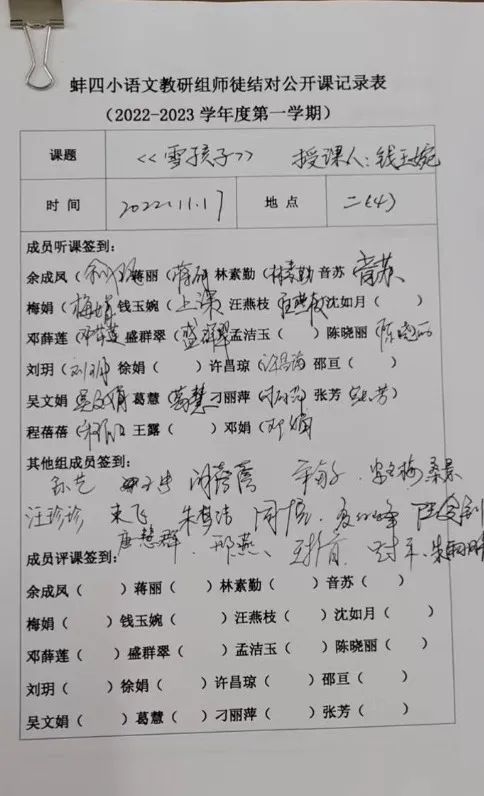 蚌四小语文教研组师徒结对公开课记录表
（2022-2023 学年度第一学期）
课题 《雪孩子》 授课人：钱玉婉
时 间 2022.11.17 地 点 二（4）
成员听课签到：
余成凤（ 蒋丽（蒋丽 林素勤（林素勤 音苏 音苏
梅娟（梅娟 钱玉婉（上课）汪燕枝（汪燕枝 沈如月（ ）
邓薛莲（邓薛莲 盛群翠（盛群翠 孟洁玉（ ）陈晓丽（陈晓丽
刘玥（刘玥）徐娟（ ）许昌琼（许昌琼 邵亘（ ）
吴文娟 吴文娟 葛慧（葛慧）刁丽萍（刁丽萍）张芳（张芳）
程蓓蓓（ ）王露（ ）邓娟（邓娟
其他组成员签到：
孙艺 胡蓓蓓 桑景
汪珍珍 来飞 朱梦洁
唐慧群 . 邢燕、
成员评课签到：
余成凤（ ）蒋丽（ ）林素勤（ ）音苏（ ）
梅娟（ ）钱玉婉（ ）汪燕枝（ ）沈如月（ ）
邓薛莲（ ）盛群翠（ ）孟洁玉（ ）陈晓丽（ ）
刘玥（ ）徐娟（ ）许昌琼（ ）邵亘（ ）
吴文娟（ ）葛慧（ ）刁丽萍（ ）张芳（ ）